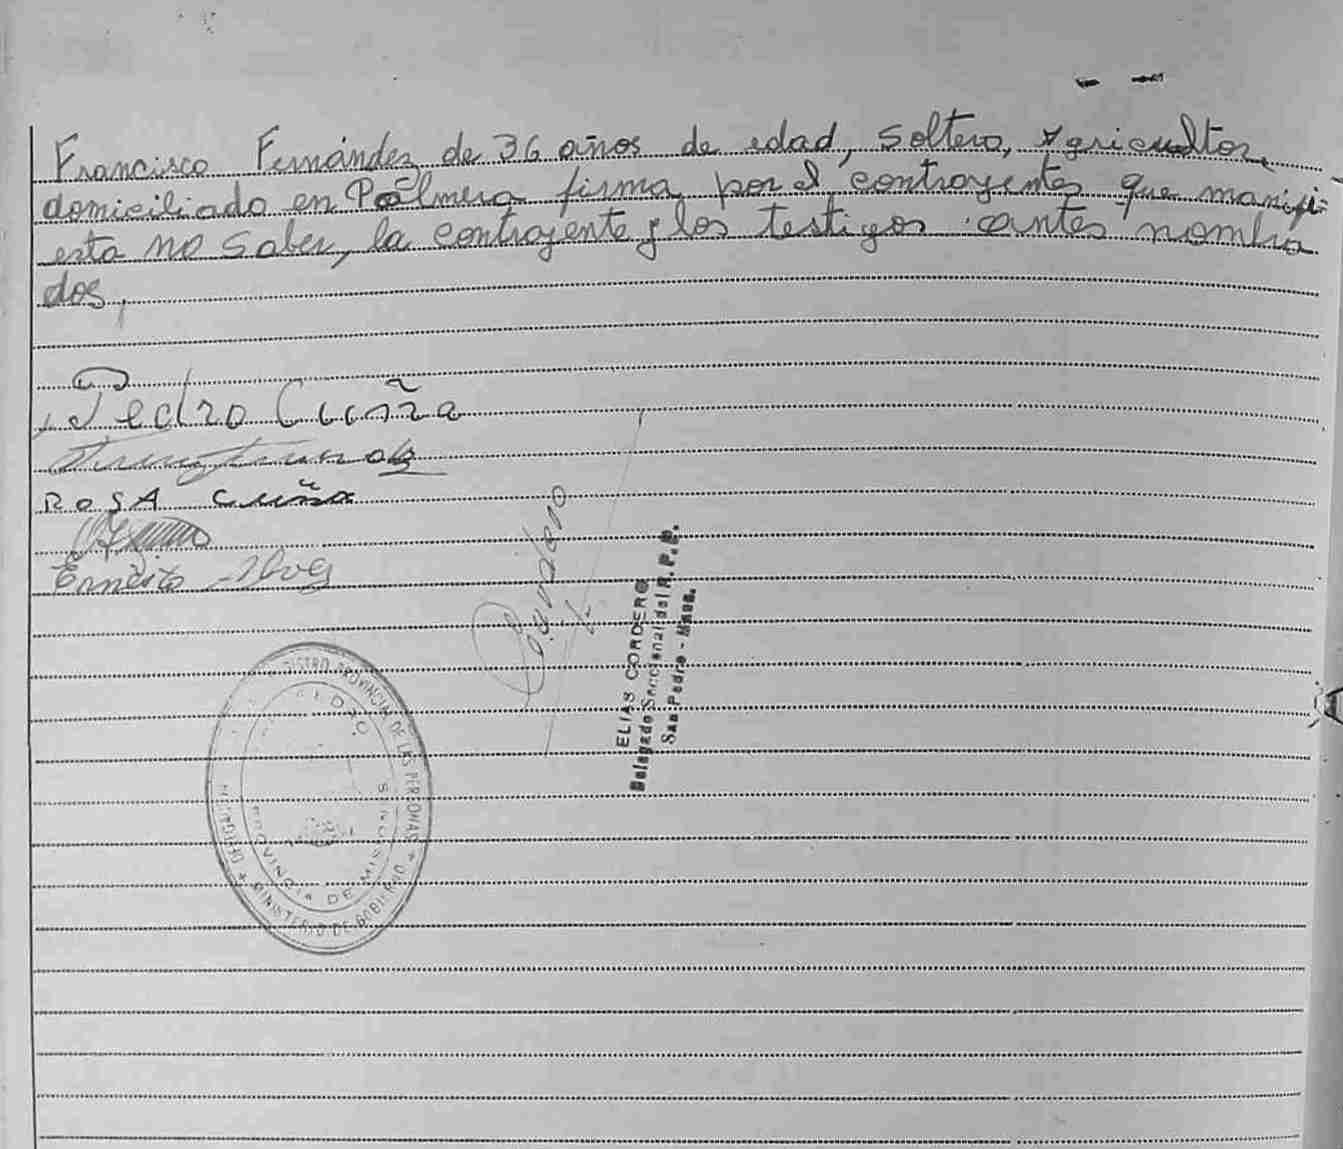 Francisco Fernández de 36 años de edad, soltero, agricultor,
domiciliado en Palmera firma por el contrayentes que manifi-
esta no saber, la contrayente y los testigos antes nombra
dos,
Pedro Cuña
ROSA Cuña
Ernesto
Cordero
ELIAS CORDERO
Delegado Seccional del R. P. P.
San Pedro - Mnes.
REGISTRO PROVINCIAL DE LAS PERSONAS
MINISTERIO DE GOBIERNO
PEDRO
PROVINCIA DE MISIONES